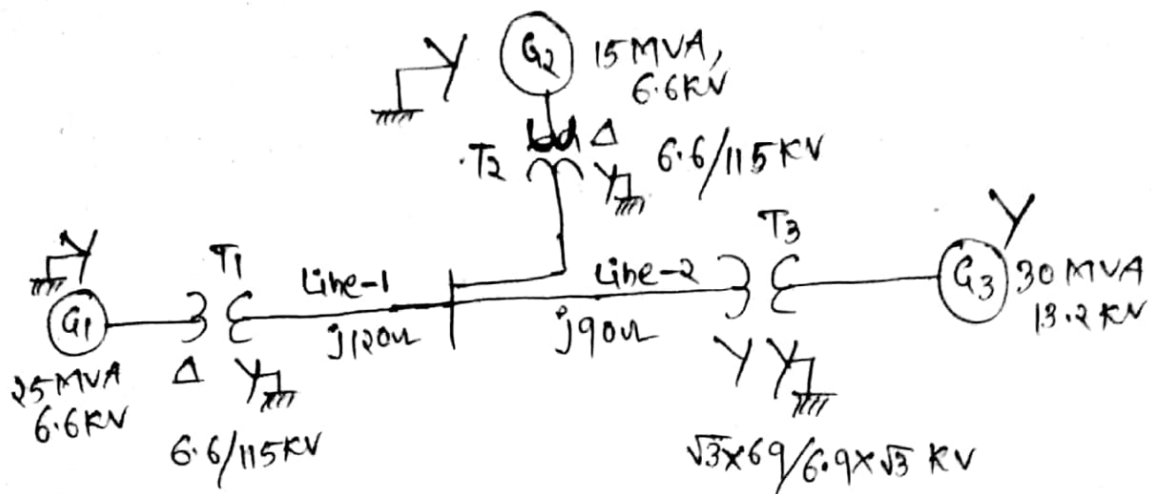 G2 15 MVA,
6.6KV
T2 Δ 6.6/115 KV
Y
T1
Line-1
Line-2
T3
Y
G1
j120Ω
j90Ω
G3 30 MVA
13.2 KV
25 MVA
6.6KV
Δ Y
Y Y
6.6/115KV
√3×69/6.9×√3 KV